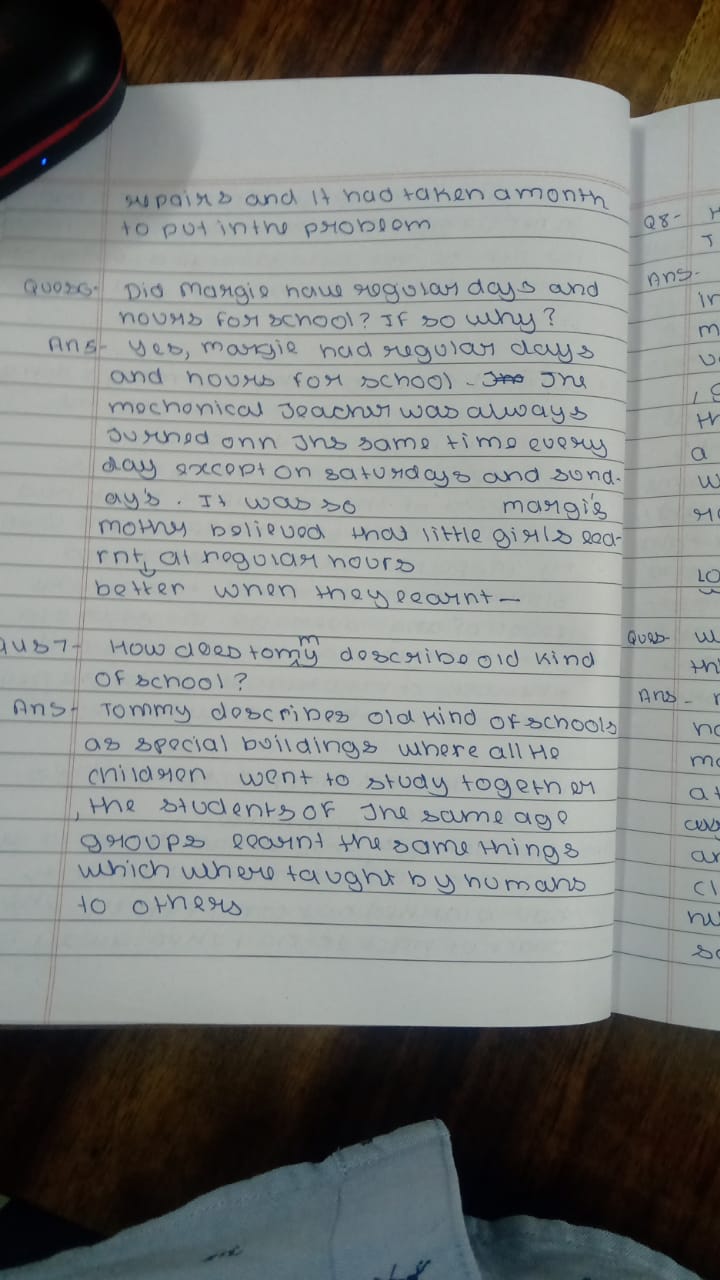 repairs and it had taken a month
to put in the probleom
Ques6- Did Margie have regular days and
hours for school? If so why?
Ans- Yes, margie had regular days
and hours for school - The
mechonical Teacher was always
turned onn The same time every
day except on saturdays and sund-
ay's. It was so margi's
mothy believed that little girls lea-
rnt, at regular hours
better when they learnt -
Qus7- How does tommy describe old kind
of school?
Ans- Tommy describes old kind of schools
as special buildings where all the
children went to study together
, the students of The same age
groups learnt the same things
which where taught by humans
to others
Q8- H
J
Ans-
in
m
th
a
w
LO
Ques- w
thi
Ans- 
no
mo
at
an
cl
nu
so